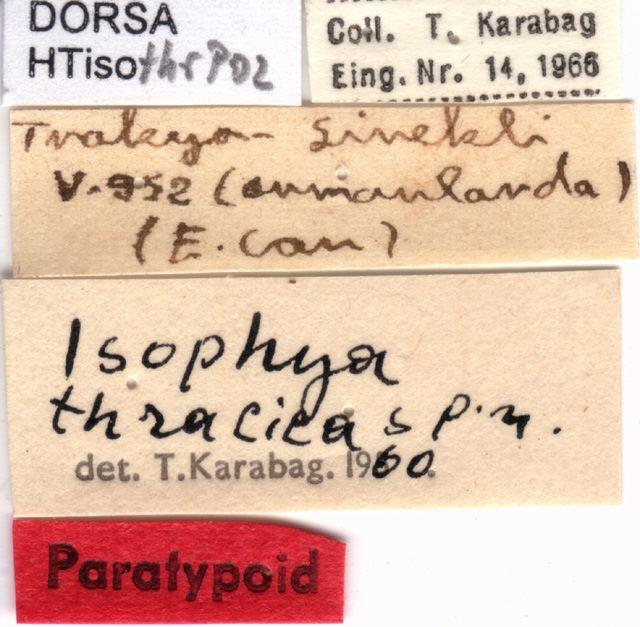 DORSA
HTisothrPD2
Coll. T. Karabag
Eing. Nr. 14, 1966
Trakya - Sinekli
V.952 (ormanlarda)
(E. Can)
Isophya
thracica sp. n.
det. T.Karabag. 1960.
Paratypoid